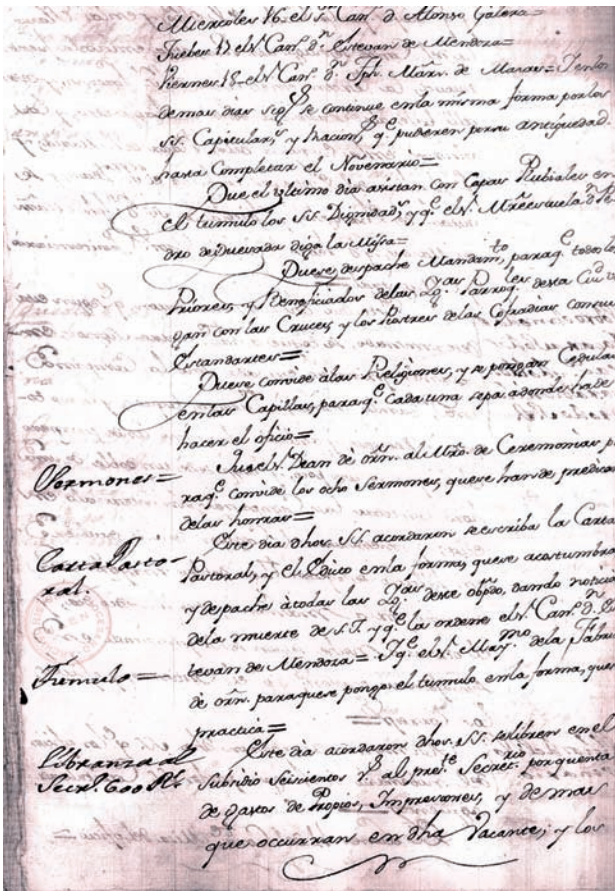 Miercoles 16. el S.r Can. d. Alonso Galera=
Jueves 17 el S.r Can. d.n Estevan de Mendoza=
Viernes 18- el S.r Can. d.n Jph. Marn. de Maxas= Y en los
demas dias sqq.s se continue en la misma forma por los
SS. Capitular.s y Racion.s q.e pudieren por su antiguedad
hasta Completar el Novenario=
Que el ultimo dia asistan con Capas Pluviales en
el tumulo los SS. Dignidad.s y q.e el S.r Mrescuela d.n Pe
dro de Quevada diga la Missa=
Que se despache Mandam.to para q.e todos los
Priores, y Beneficiados de las Yg.as Parroq.les desta Ciu.d
gan con las Cruces, y los Piostres de las Cofradias con su
Estandartes=
Que se convide à las Religiones, y se pongan Cedulas
en las Capillas, para q.e cada una sepa à donde ha de
hacer el oficio=
Sermones=
Que el S.r Dean dè orn. al Mro. de Ceremonias pa
ra q.e convide los ocho Sermones, que se han de predicar
de las honras=
Carta Pasto-
ral.
Este dia dhos. SS. acordaron se escriba la Carta
Pastoral, y el Edicto en la forma, que se acostumbra
y despache à todas las Yg.as deste obpdo, dando noticia
de la muerte de S.I. y q.e la ordene el S.r Can.o d.n Es
tevan de Mendoza= Y q.e el S.r May.mo de la Fabri
Tumulo=
dè orn. para que se ponga el tumulo en la forma, que
practica=
Libranza al
Secr.o 600 R.s
Este dia acordaron dhos. SS. se libren en el
Subsidio seiscientos r.s al pres.te Secret.rio por quenta
de gastos de Propios, Impresiones, y demas
que occurran en dha Vacante; y los